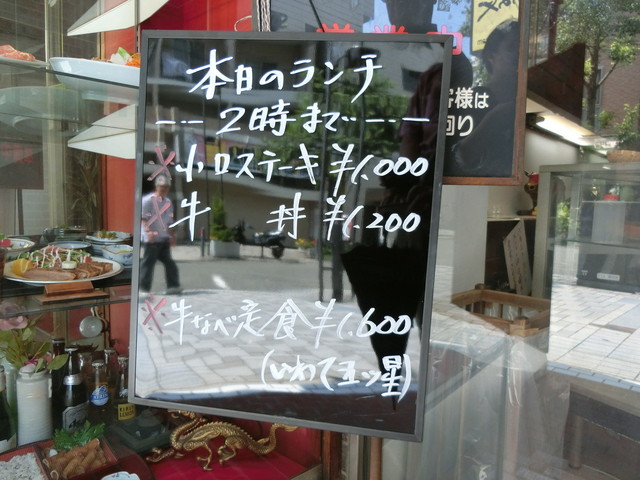 本日のランチ
2時まで
※小口ステーキ ¥1,000
※牛 丼 ¥1,200
※牛なべ定食 ¥1,600
(いわて五ツ星)
客様は
回り